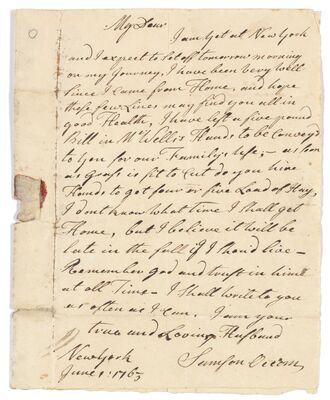 My Dear
I am yet at New York
and I expect to Set off tomorrow morning
on my Journey, I have been very well
Since I came from Home, and hope
these few Lines may find you all in
good Health, I have left a five pound
Bill in Mr Wells's Hands to be Convey'd
to you for our Family's Use,– as soon
as Grass is fit to Cut do you hire
Hands to get four or five Load of Hay,
I dont know what time I shall get
Home, but I believe it will be
late in the fall if I Should live–
Remember God and trust in him
at all Time– I shall write to you
as often as I can. I am your
true and Loving Husband
Samson Occom
New York
June 1: 1763